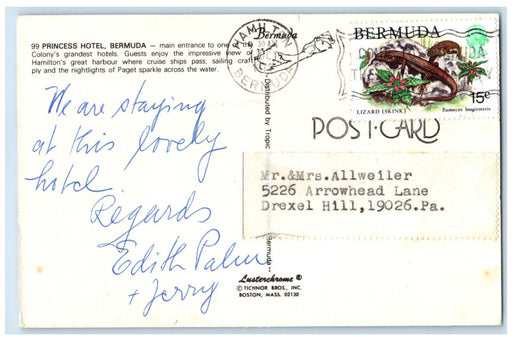 99 PRINCESS HOTEL, BERMUDA — main entrance to one of the
Colony's grandest hotels. Guests enjoy the impressive view of
Hamilton's great harbour where cruise ships pass, sailing craft
ply and the nightlights of Paget sparkle across the water.
Bermuda
HAMILTON
30 AM
BERMUDA
BERMUDA
15c
LIZARD (SKINK)
Eumeces longirostris
POST·CARD
We are staying
at this lovely
hotel.
Regards
Edith Palm
+ Jerry
Distributed by Tropic
Bermuda
Mr.&Mrs.Allweiler
5226 Arrowhead Lane
Drexel Hill,19026.Pa.
Lusterchrome®
© TICHNOR BROS., INC.
BOSTON, MASS. 02130